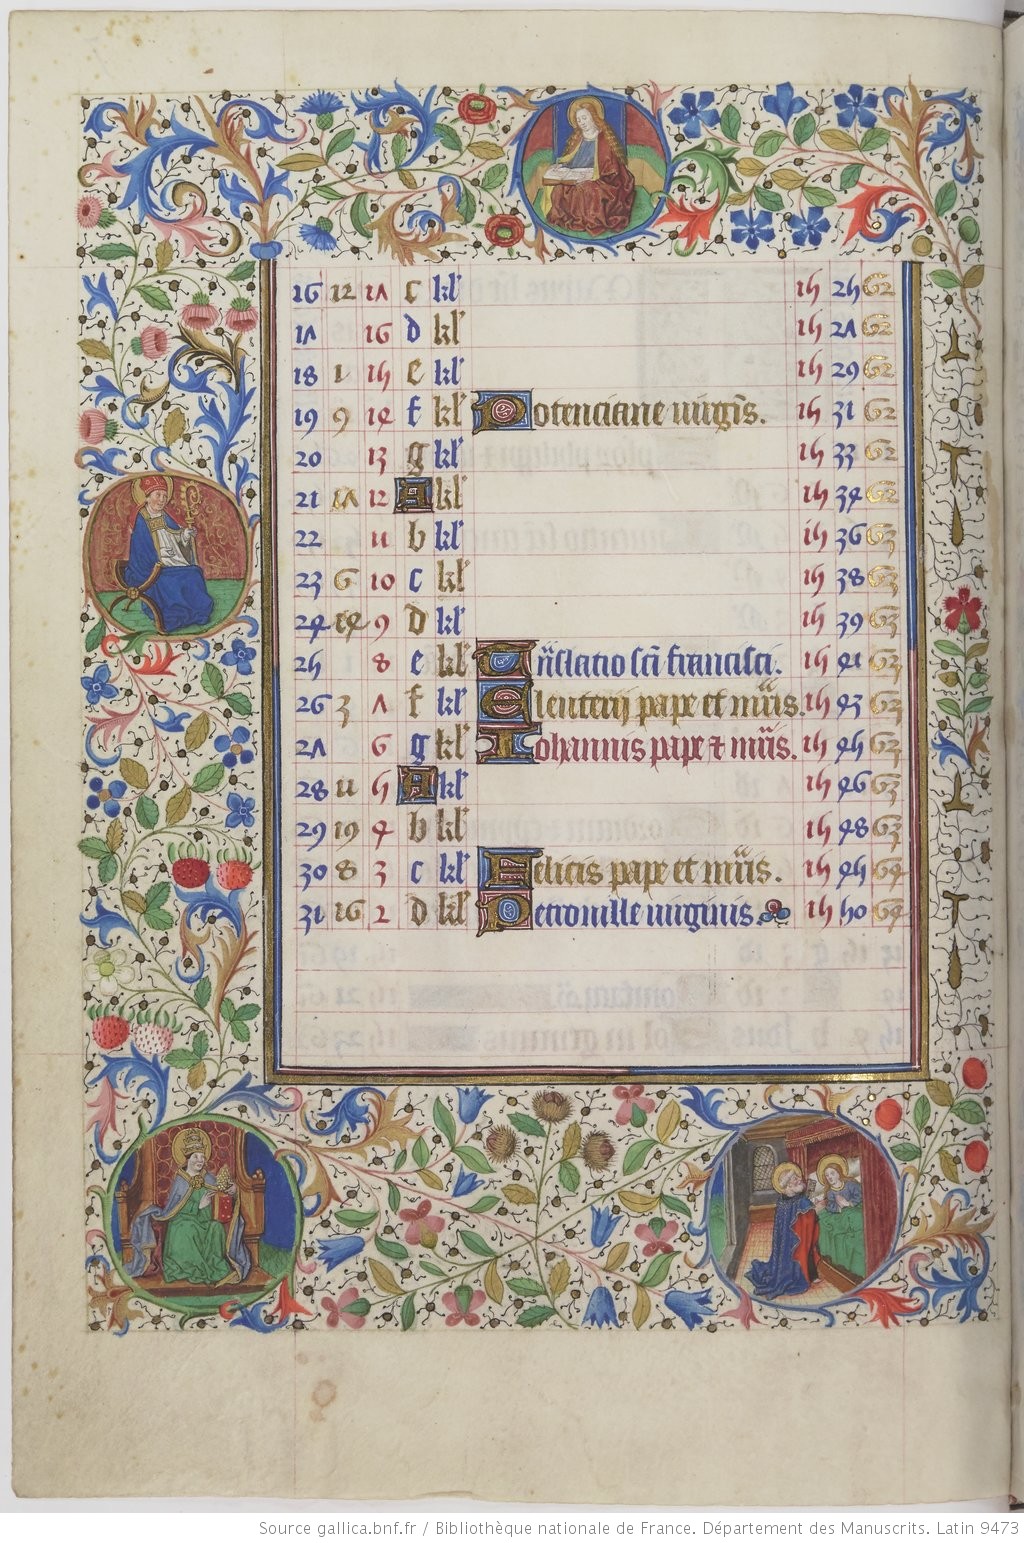 16 12 17 c kl' 15 25 62
17 16 d kl' 15 27 62
18 1 15 e kl' 15 29 62
19 9 14 f kl' Potenciane uirgīs. 15 31 62
20 13 g kl' 15 33 62
21 17 12 A kl' 15 34 62
22 11 b kl' 15 36 63
23 6 10 c kl' 15 38 63
24 14 9 d kl' 15 39 63
25 8 e kl' Tn̄slatio sc̄i francisci. 15 41 63
26 3 7 f kl' Eleuterij pape et mr̄is. 15 43 63
27 6 g kl' Iohannis pape ⁊ mr̄is. 15 45 63
28 11 5 A kl' 15 46 63
29 19 4 b kl' 15 48 63
30 8 3 c kl' Felicis pape et mr̄is. 15 45 64
31 16 2 d kl' Petronille uirginis 15 50 64
Source gallica.bnf.fr / Bibliothèque nationale de France. Département des Manuscrits. Latin 9473